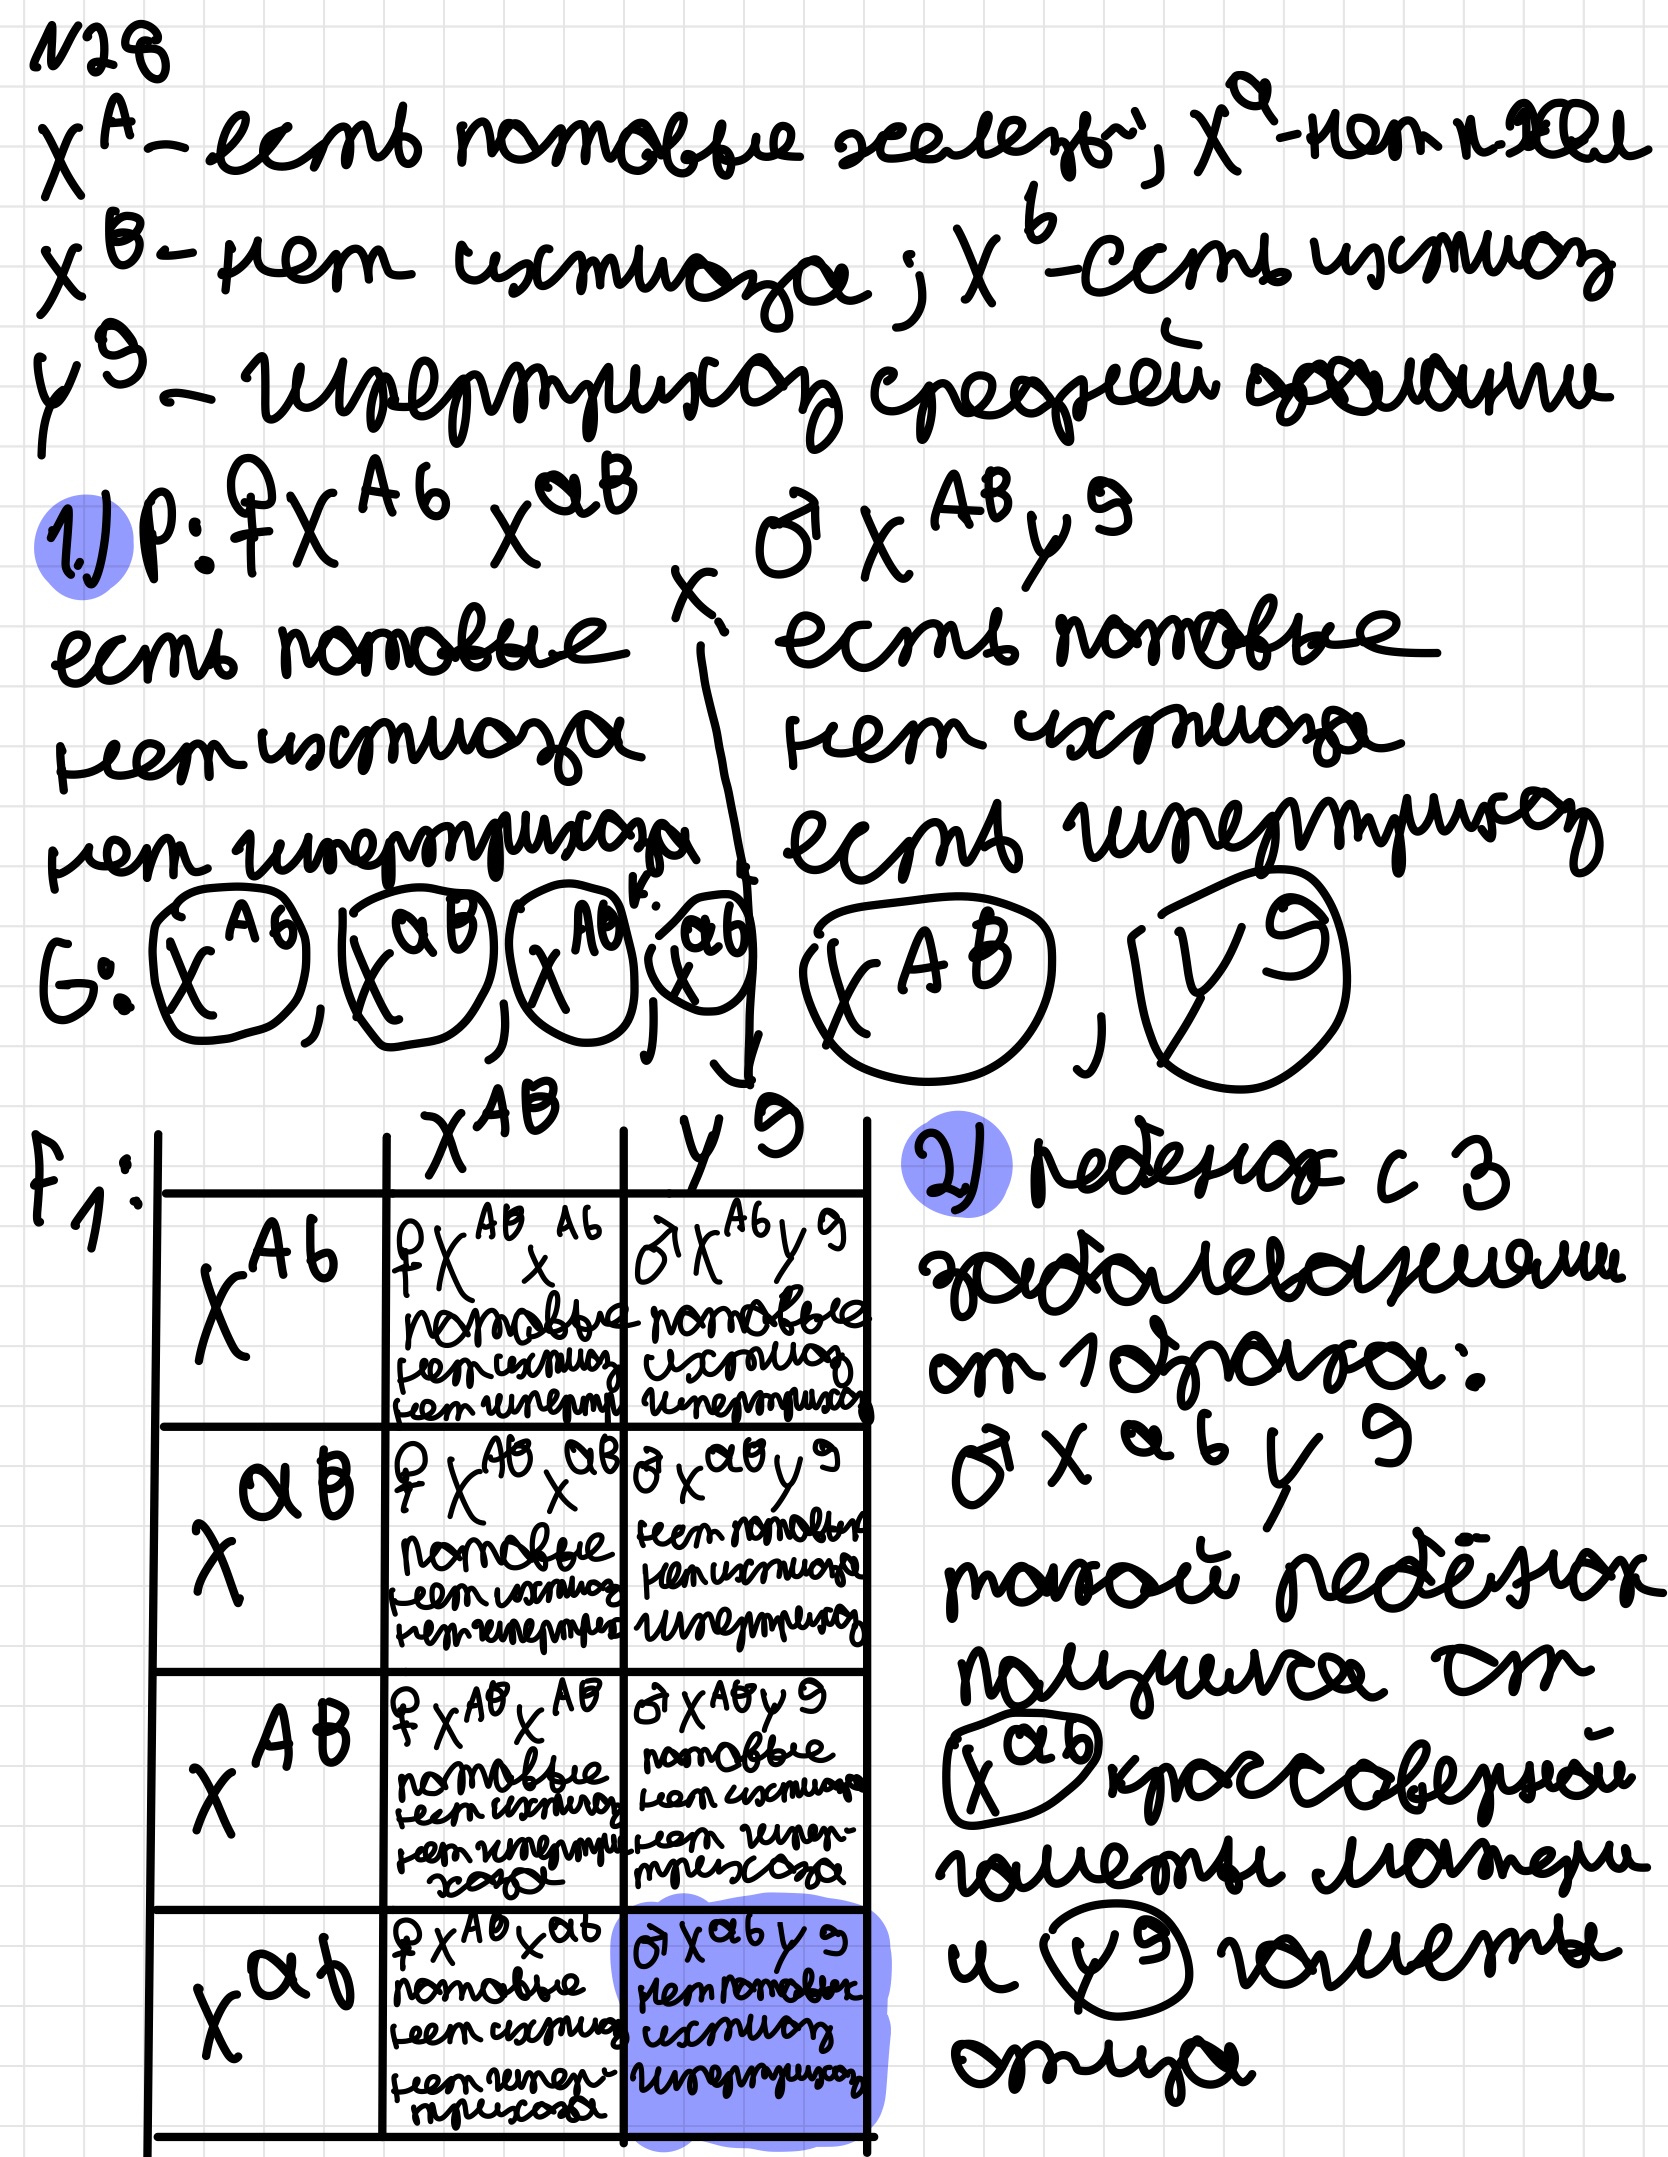 N28
X^A - есть потовые железы; X^a - нет п.жел
X^B - нет ихтиоза; X^b - есть ихтиоз
У^g - гипертрихоз средней фаланги
1.) P: ♀ X^Ab X^aB × ♂ X^AB У^g
есть потовые есть потовые
нет ихтиоза нет ихтиоза
нет гипертрихоза есть гипертрихоз
G: X^Ab, X^aB, X^AB, X^ab X^AB, У^g
F1: X^AB У^g
X^Ab
♀ X^AB X^Ab
потовые
нет ихтиоз
нет гипертри
♂ X^Ab У^g
потовые
ихтиоз
гипертрихоз
X^aB
♀ X^AB X^aB
потовые
нет ихтиоз
нет гипертри
♂ X^aB У^g
нет потовых
нет ихтиоза
гипертрихоз
X^AB
♀ X^AB X^AB
потовые
нет ихтиоз
нет гипертри
хоза
♂ X^AB У^g
потовые
нет ихтиоза
нет гипер-
трихоза
X^ab
♀ X^AB X^ab
потовые
нет ихтиоз
нет гипер-
трихоза
♂ X^ab У^g
нет потовых
ихтиоз
гипертрихоз
2) Ребенок с 3
заболеваниями
от 1 брака:
♂ X^ab У^g
такой ребёнок
получился от
X^ab кроссоверной
гаметы матери
и У^g гаметы
отца